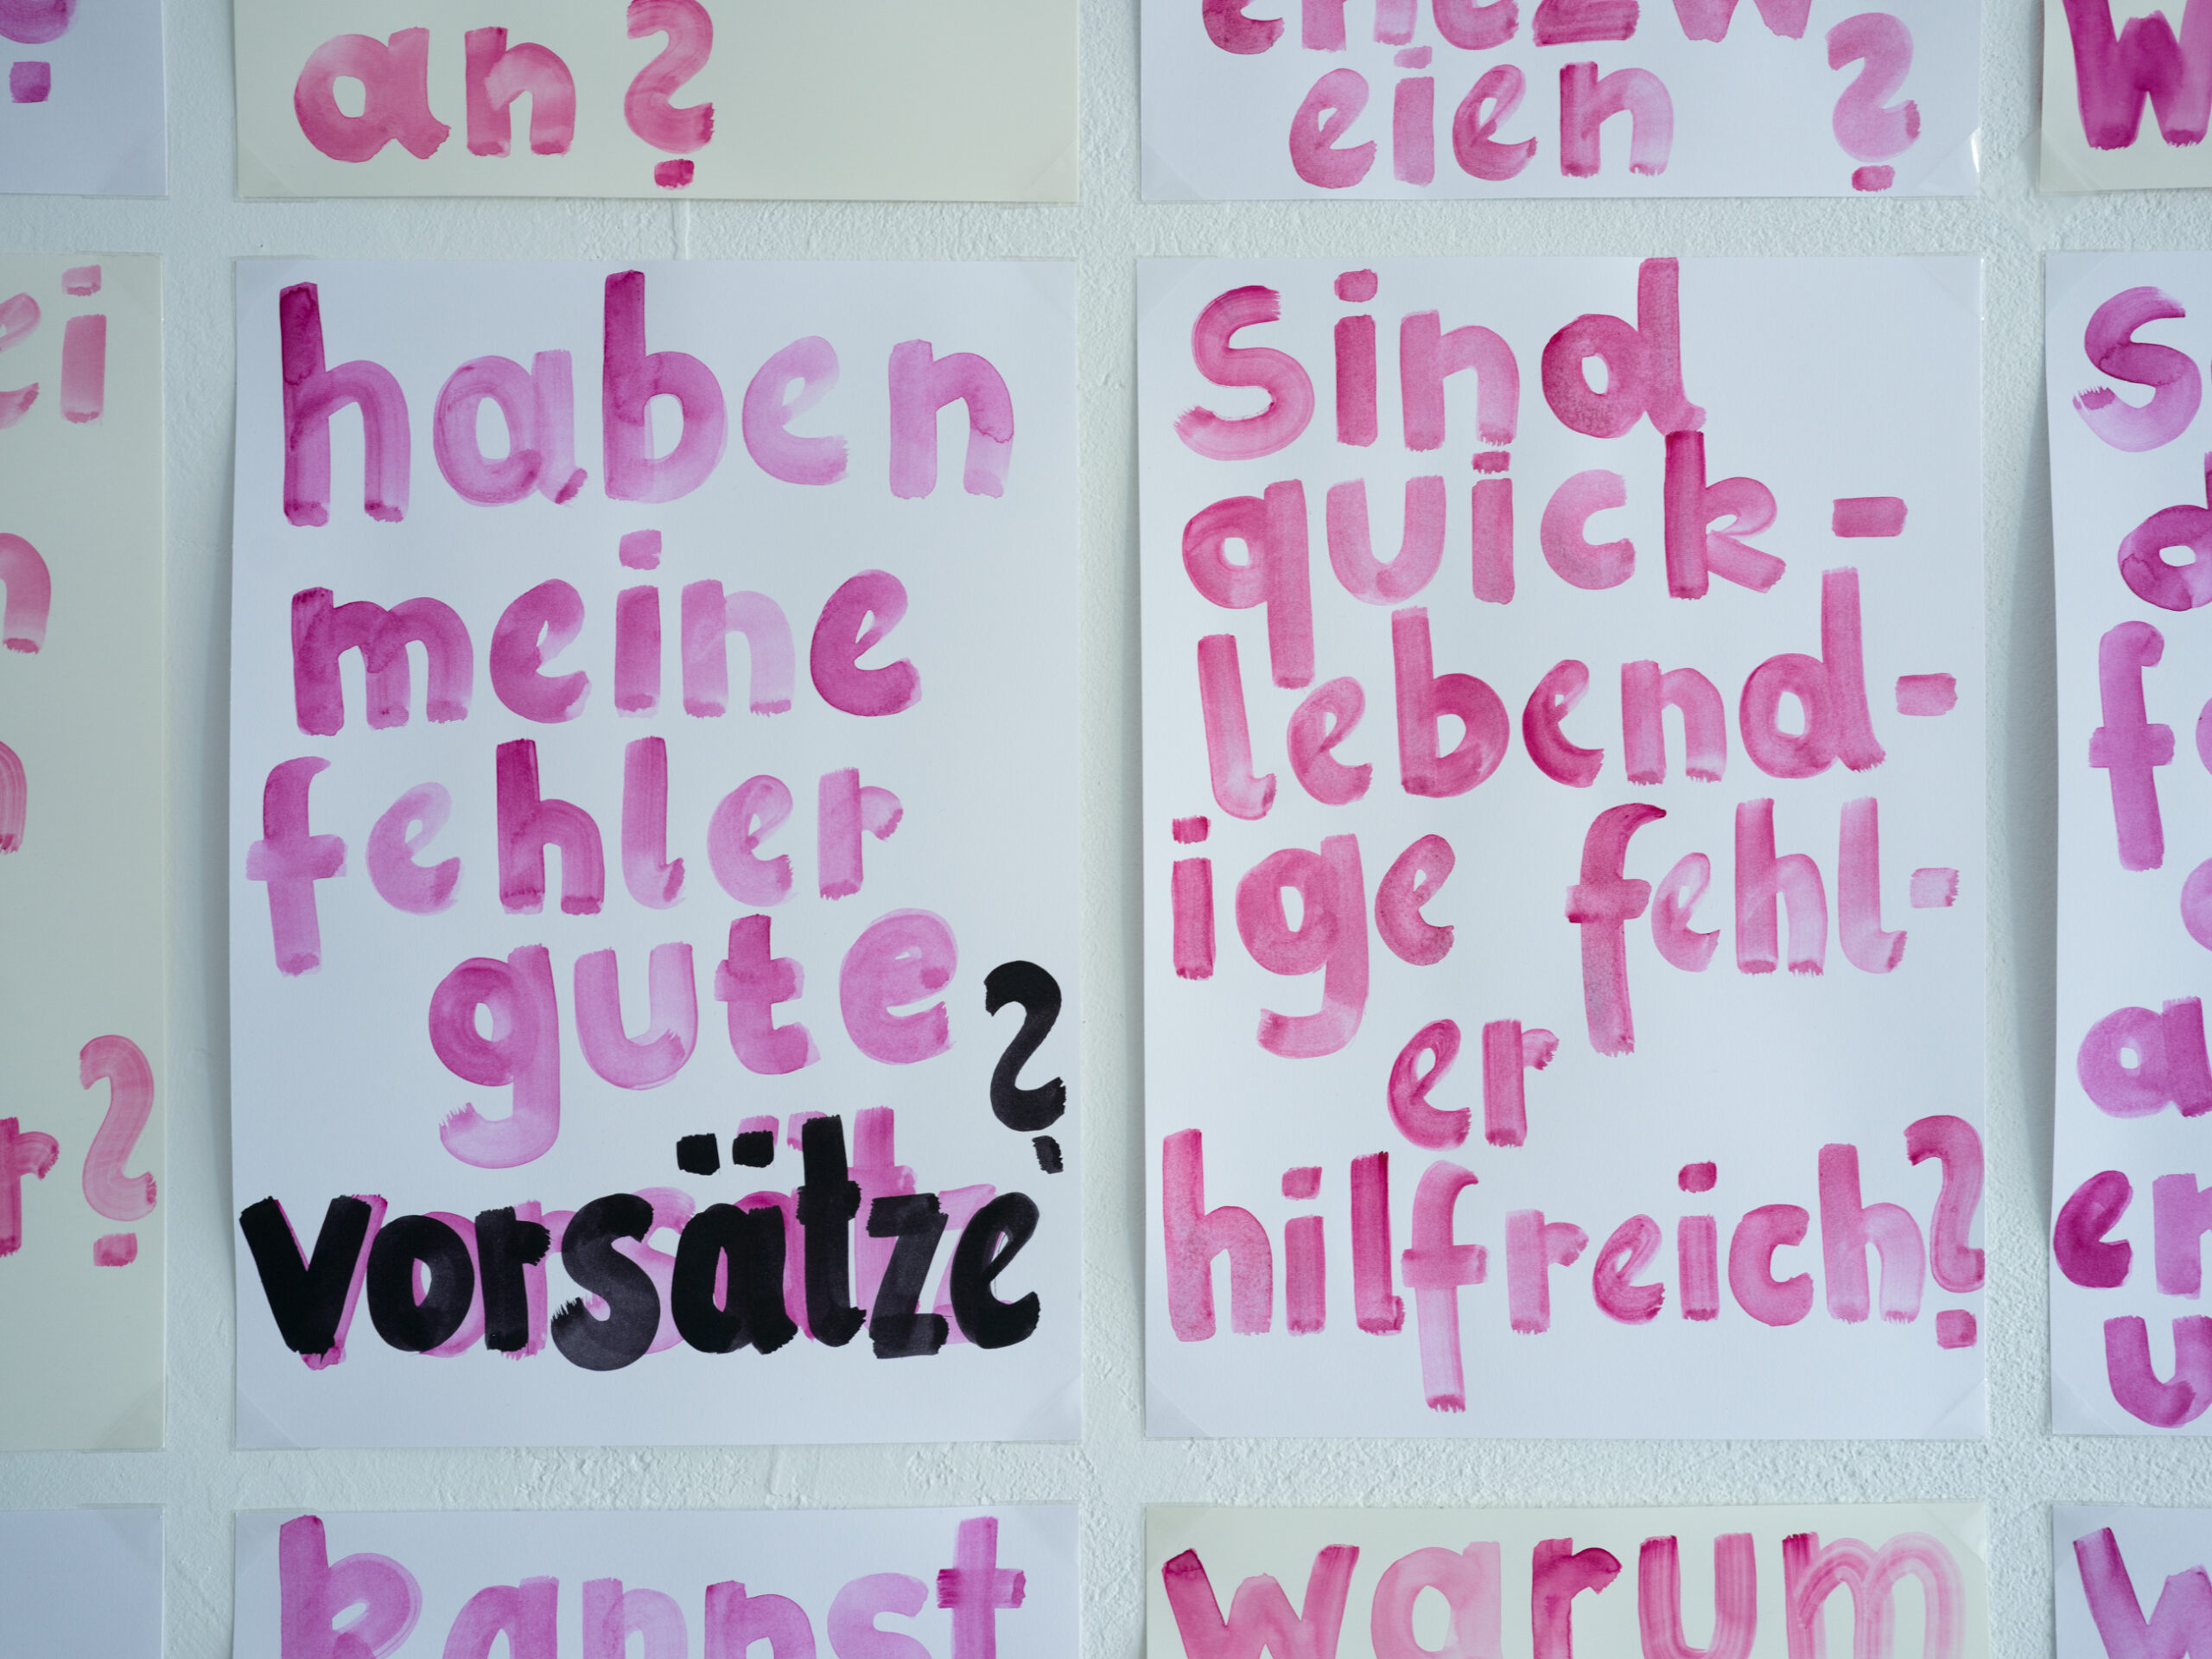 an?
eien ?
haben
meine
fehler
gute ?
vorsätze
sind
quick-
lebend-
ige fehl-
er
hilfreich?
kannst
warum